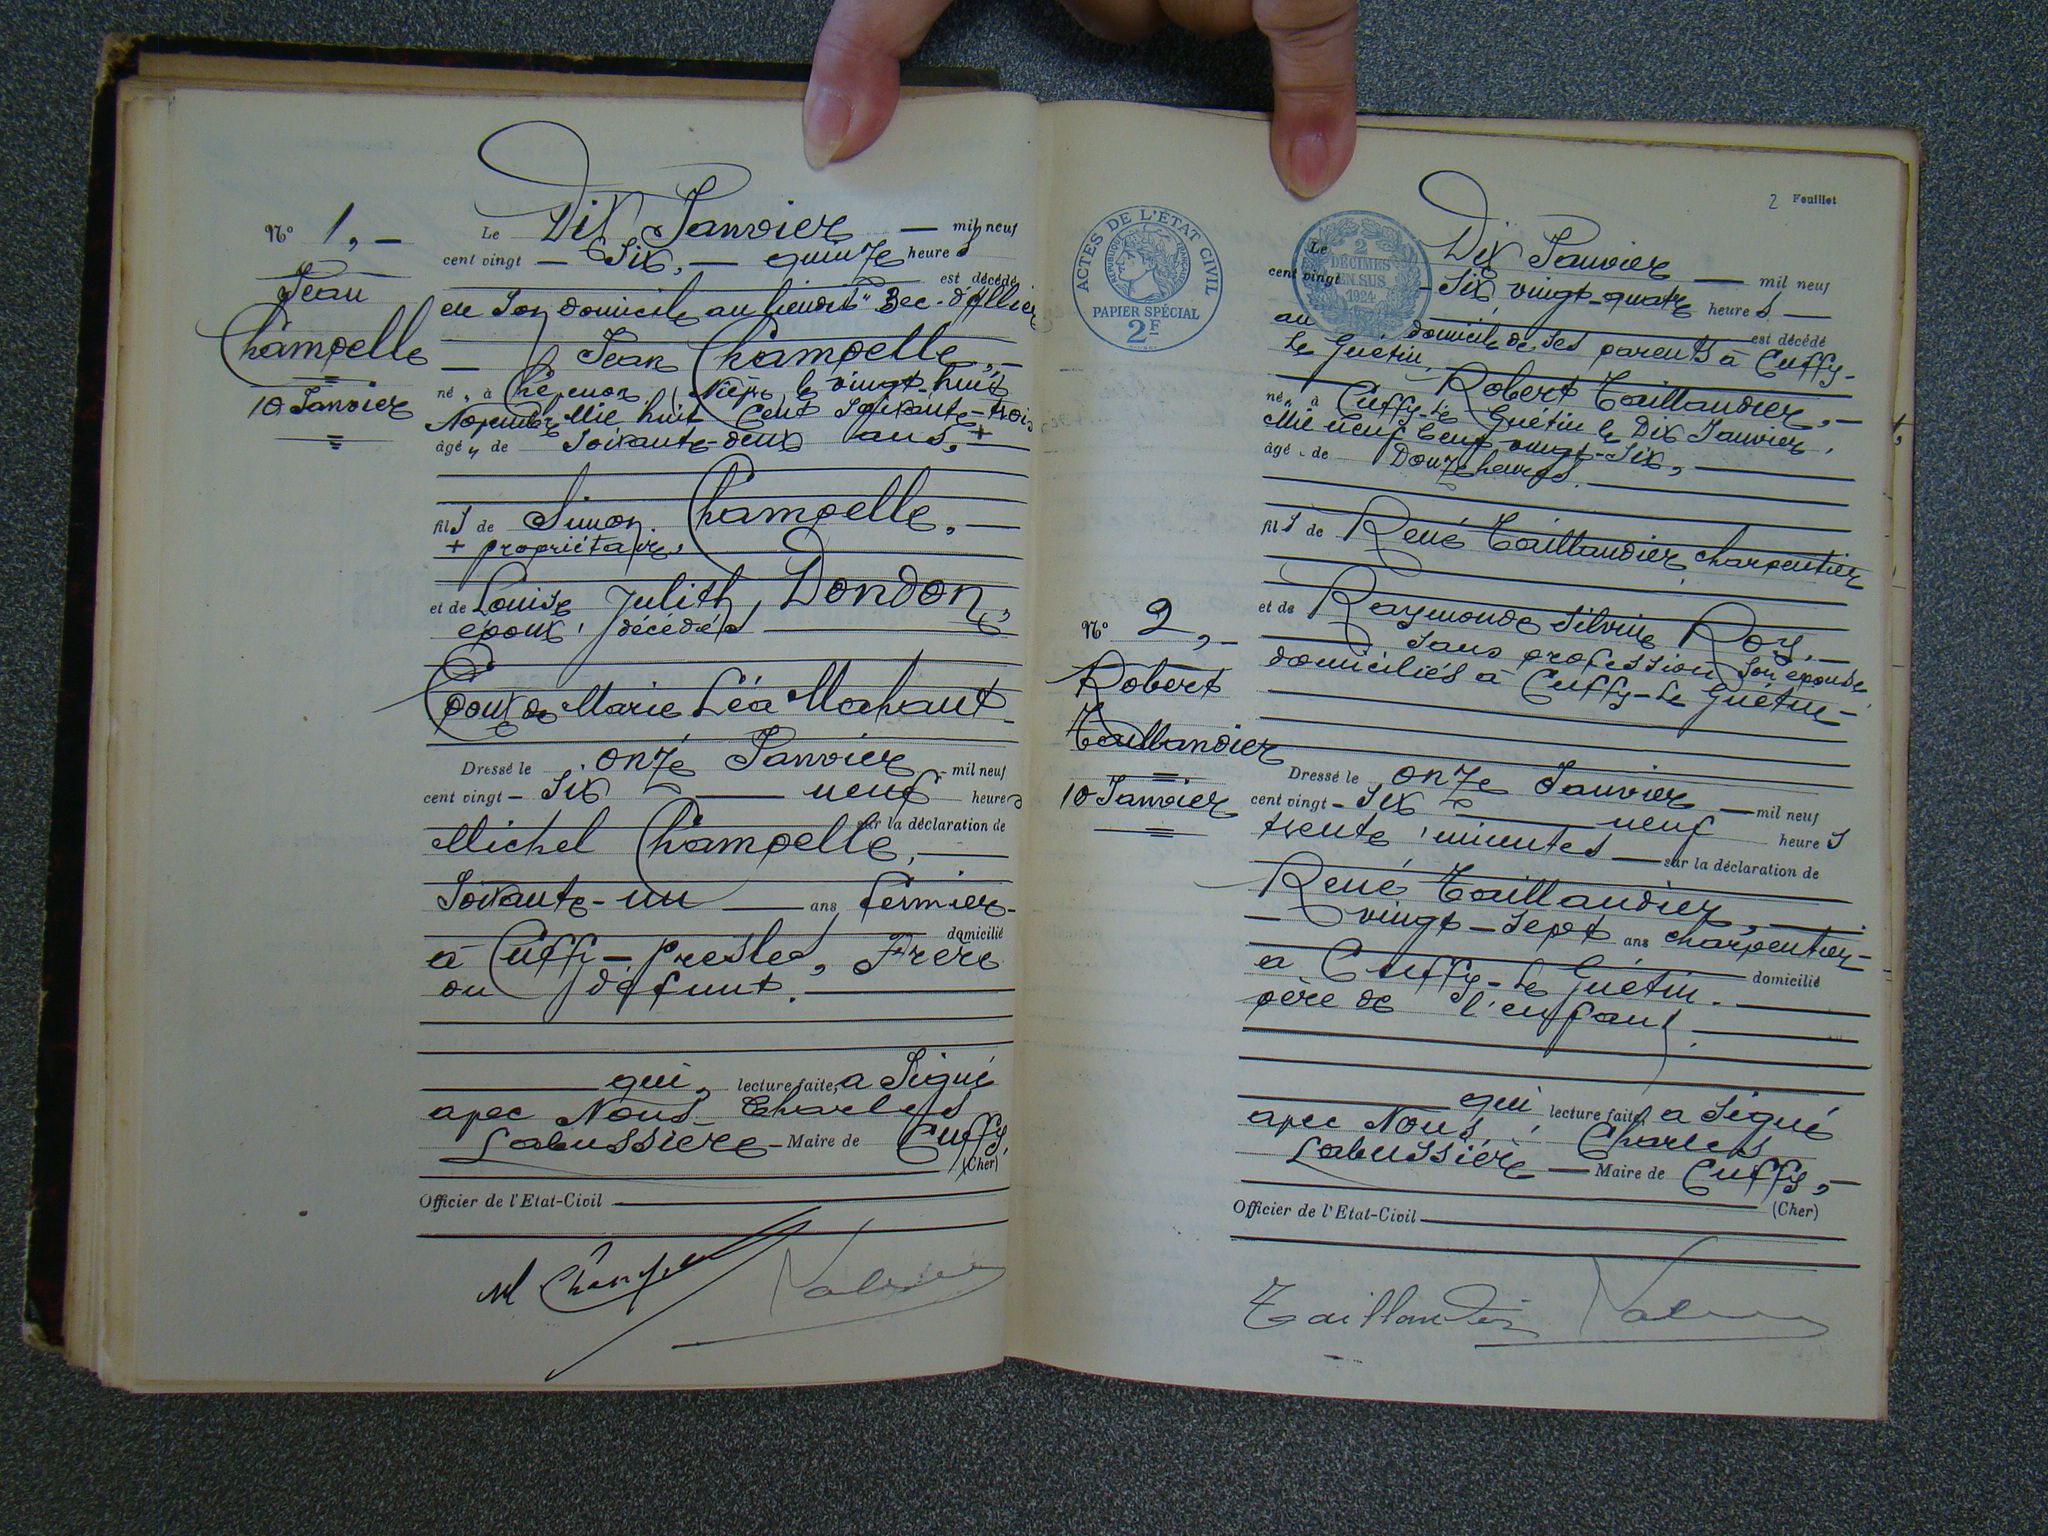 N° 1, —
Jean
Champelle
10 Janvier
Le Dix Janvier — mil neuf
cent vingt — Six, — quinze heures
est décédé
en Son domicile au lieudit "Bec-d'Allier
— Jean Champelle, —
né, à (Nièvre) le vingt huit
Novembre Mil huit Cent Soixante-trois
âgé, de Soixante-deux ans, +
fils de Simon Champelle, —
+ propriétaire,
et de Louise Julith, Dondon,
époux décédés —
Époux de Marie Léa Mahaut —
Dressé le onze Janvier - mil neuf
cent vingt - Six — neuf heures
sur la déclaration de
Michel Champelle, —
Soixante-un — ans, fermier -
domicilié
à Cuffy - Presles, Frère
du défunt. —
— qui, lecture faite, a Signé
avec Nous Charles
Labussière - Maire de Cuffy,
(Cher)
Officier de l'Etat-Civil —
M Champelle
2 Feuillet
ACTES DE L'ÉTAT CIVIL
RÉPUBLIQUE FRANÇAISE
PAPIER SPÉCIAL
2F
2
DÉCIMES
EN SUS
1924
N° 2, —
Robert
Taillandier
10 Janvier
Le Dix Janvier — mil neuf
cent vingt - Six vingt-quatre heures —
est décédé
au domicile de Ses parents à Cuffy-
Le Guétin, Robert Taillandier, —
né, à Cuffy-Le Guétin le Dix Janvier
Mil neuf Cent vingt-Six, —
âgé, de Douze heures. —
fils de René Taillandier charpentier
et de Raymonde Silvine Roy, —
Sans profession Son épouse
domiciliés à Cuffy-Le Guétin —
Dressé le onze Janvier — mil neuf
cent vingt - Six — neuf heures
trente minutes — sur la déclaration de
René Taillandier, —
— vingt-Sept ans charpentier —
domicilié
à Cuffy-Le Guétin. —
père de l'enfant. —
— qui lecture faite, a Signé
avec Nous, Charles
Labussière — Maire de Cuffy, —
(Cher)
Officier de l'Etat-Civil —
Taillandier